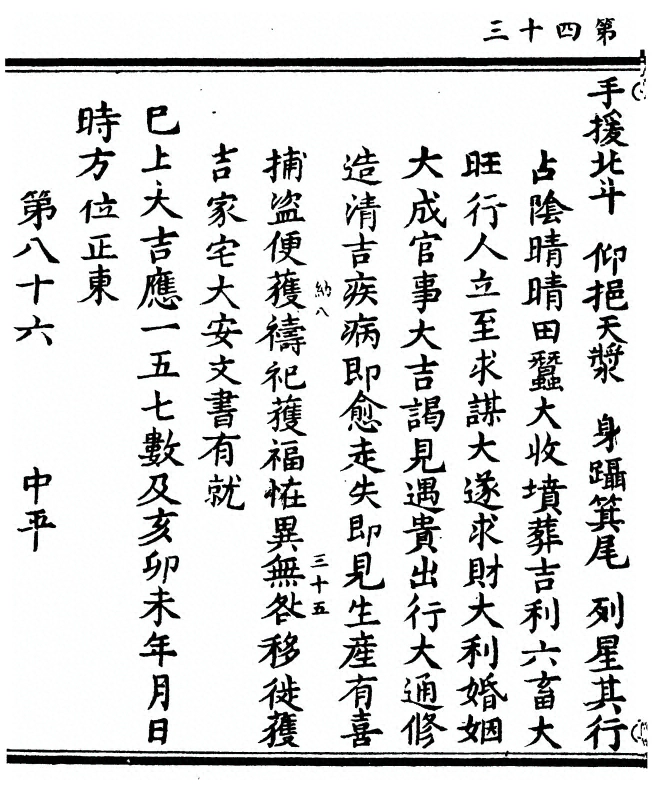 第四十三
手援北斗　仰挹天漿　身躡箕尾　列星其行
占陰晴晴田蠶大收墳葬吉利六畜大
旺行人立至求謀大遂求財大利婚姻
大成官事大吉謁見遇貴出行大通修
造清吉疾病即愈走失即見生產有喜
納八　三十五
捕盜便獲禱祀獲福恠異無咎移徙獲
吉家宅大安文書有就
巳上大吉應一五七數及亥卯未年月日
時方位正東
第八十六　中平